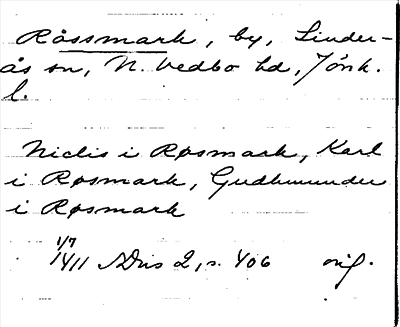 Råssmark, by, Linder-
ås sn, N. Vedbo hd, Jönk.
l.
Niclis i Røsmark, Karl
i Røsmark, Gudhmunder
i Røsmark
1/7
1411 SDns 2, s. 406 orig.